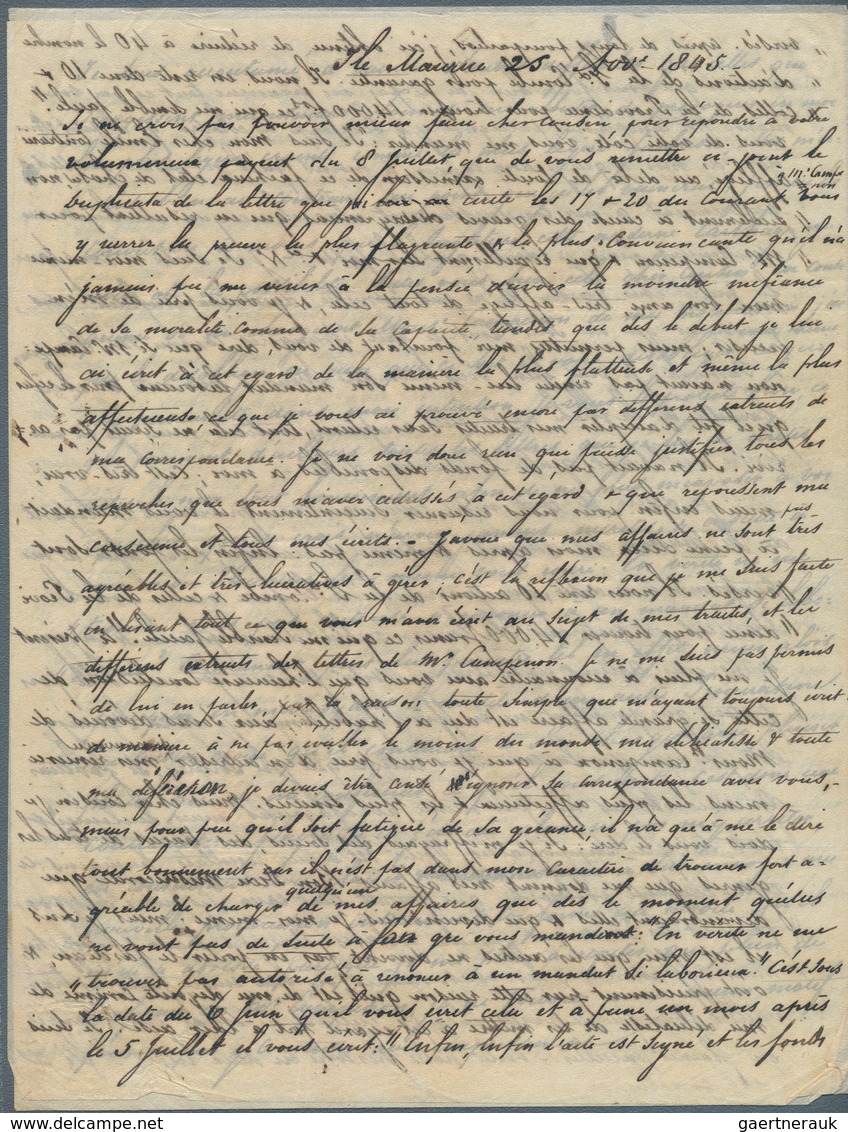 Ile Maurice 25 Novr. 1845.
Je ne crois pas pouvoir mieux faire cher Cousin pour répondre à votre
volumineux paquet du 8 Juillet que de vous remettre ci-joint le
Duplicata de la lettre que j'ai écrite les 17 & 20 du Courant à Mr. Campenon Vous
y verrez la preuve la plus flagrante & la plus Convaincante qu'il n'a
jamais pu me venir à la pensée d'avoir la moindre mefiance
de sa moralité comme de sa Capacité tandis que dès le debut je lui
ai écrit à cet egard de la manière la plus flatteuse et même la plus
affectueuse ce que je vous ai prouvé encore par differens extraits de
ma correspondance. Je ne vois donc rien qui puisse justifier tous les
reproches que vous m'avez adressés à cet egard & que repoussent ma
conscience et tous mes écrits. - J'avoue que mes affaires ne sont pas très
agréables et très lucratives à gérer, c'est la reflexion que je me suis faite
en lisant tout ce que vous m'avez écrit au sujet de mes traites, et les
differens extraits des lettres de Mr. Campenon. Je ne me suis pas permis
de lui en parler, par la raison toute simple que m'ayant toujours écrit
de maniere à ne pas éveiller le moins du monde ma délicatesse & toute
ma discrétion je devais être censé ignorer sa correspondance avec vous,
mais pour peu qu'il soit fatigué de sa gérance il n'a qu'à me le dire
tout bonnement car il n'est pas dans mon caractère de trouver fort a-
gréable de charger quelqu'un de mes affaires que dès le moment qu'elles
ne vont pas de suite à son gré vous mandent: "En verité ne me
"trouvez pas autorisé à renoncer à un mandat si laborieux." C'est sous
la date du 6 Juin qu'il vous ecrit cela et à peine un mois après
le 5 Juillet il vous ecrit: "Enfin, Enfin l'acte est signé et les fonds